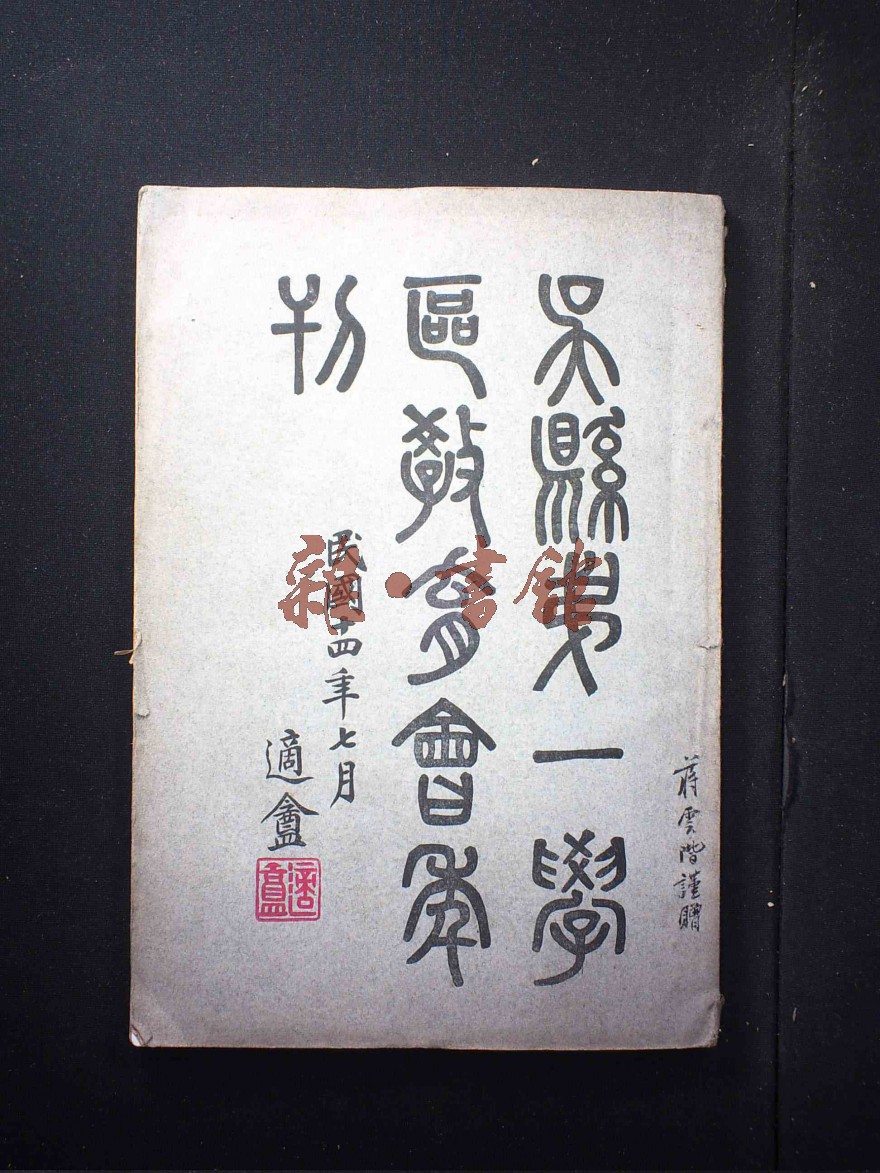 蔣雲階謹贈
吳縣弟一學
區教育會年
刊
民國十四年七月
適盦
適盦
雜·書館